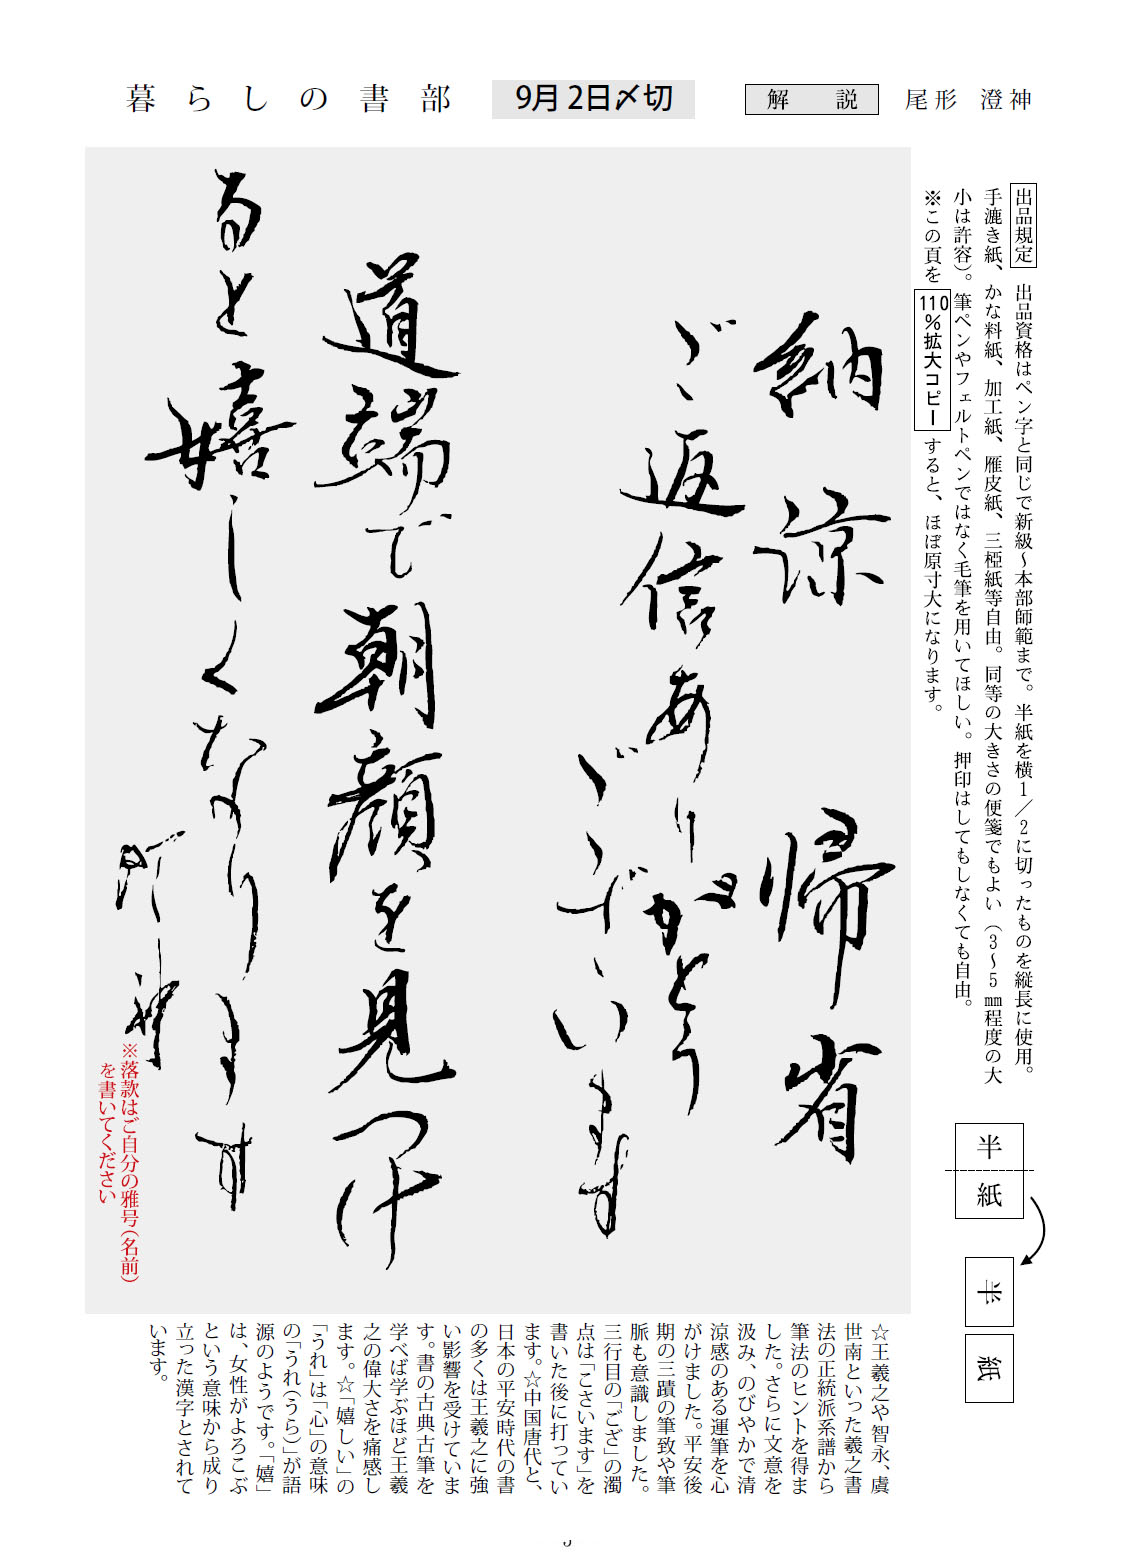 暮らしの書部 9月2日〆切 解説 尾形 澄神
出品規定 出品資格はペン字と同じで新級～本部師範まで。半紙を横1／2に切ったものを縦長に使用。
手漉き紙、かな料紙、加工紙、雁皮紙、三椏紙等自由。同等の大きさの便箋でもよい（3～5㎜程度の大
小は許容）。筆ペンやフェルトペンではなく毛筆を用いてほしい。押印はしてもしなくても自由。
※この頁を110％拡大コピーすると、ほぼ原寸大になります。
半紙
半紙
納涼 帰省
ご返信ありがとう
ございます
道端で朝顔を見つけ
ると嬉しくなります
澄神
※落款はご自分の雅号(名前)
を書いてください
☆王羲之や智永、虞
世南といった羲之書
法の正統派系譜から
筆法のヒントを得ま
した。さらに文意を
汲み、のびやかで清
涼感のある運筆を心
がけました。平安後
期の三蹟の筆致や筆
脈も意識しました。
三行目の「ござ」の濁
点は「こさいます」を
書いた後に打ってい
ます。☆中国唐代と、
日本の平安時代の書
の多くは王羲之に強
い影響を受けていま
す。書の古典古筆を
学べば学ぶほど王羲
之の偉大さを痛感し
ます。☆「嬉しい」の
「うれ」は「心」の意味
の「うれ(うら)」が語
源のようです。「嬉」
は、女性がよろこぶ
という意味から成り
立った漢字とされて
います。